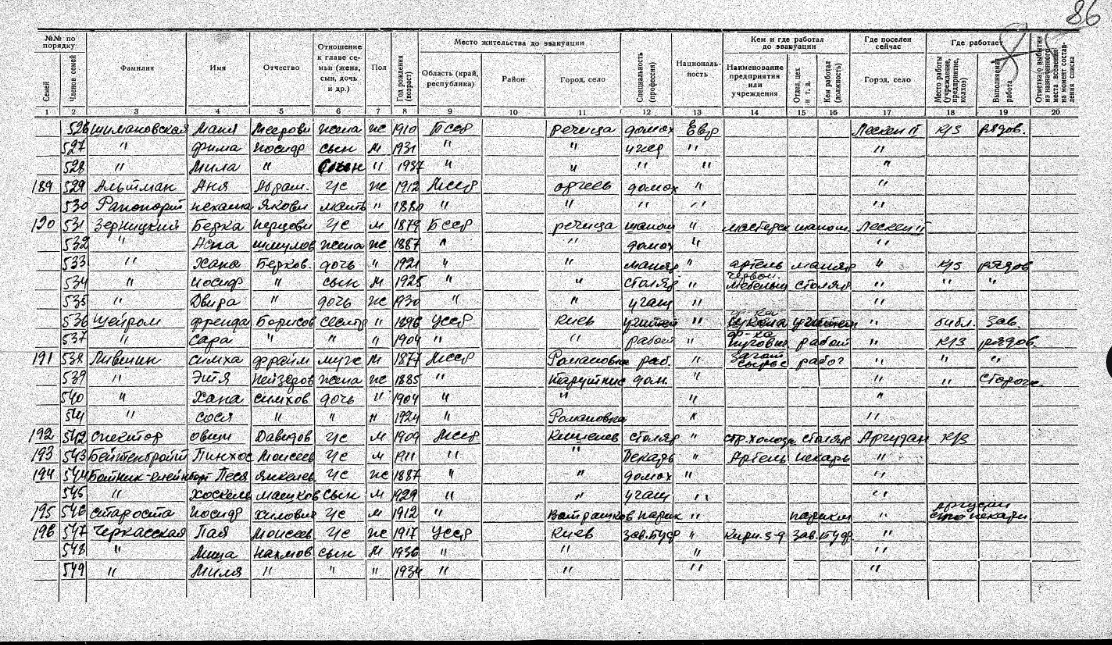 86
№№ по порядку
Семей
Членов семей
Фамилия
Имя
Отчество
Отношение к главе семьи (жена, сын, дочь и др.)
Пол
Год рождения (возраст)
Место жительства до эвакуации
Область (край, республика)
Район
Город, село
Специальность (профессия)
Национальность
Кем и где работал до эвакуации
Наименование предприятия или учреждения
Отдел, цех и т. д.
Кем работал (должность)
Где поселен сейчас
Город, село
Где работает
Место работы (учреждение, предприятие, колхоз)
Выполняемая работа
Отметка о выбытии из назначенного места поселения на момент составления списка
1 2 3 4 5 6 7 8 9 10 11 12 13 14 15 16 17 18 19 20
526 Шимановская Маня Меерови жена ж 1910 Бсср речица домох Евр Лескен II к/з рядов.
527 " Фима Иосиф сын м 1931 " " учащ " "
528 " Мила " сын " 1937 " " " " "
189 529 Альтман Аня Абрам. чс ж 1912 Мсср оргеев домох " "
530 Рапопорт нехама Якови мать " 1880 " " " " "
190 531 Зерницкий Берка перцови чс м 1879 Бсср речица шапоч " мастерск шапоч. Лескен II
532 " Асна шмулов жена ж 1887 " " домох "
533 " Хана Берков. дочь " 1921 " " маляр " артель маляр " к/з рядов
534 " иосиф " сын м 1925 " " столяр " мебельщ столяр " " "
535 " Двира " дочь ж 1930 " " учащ " "
536 Шейром френда Борисов сестр " 1896 Усср Киев учител " школа учител " библ. зав.
537 " Сара " " " 1904 " " работ " ф-ка пуговиц работ " к/з рядов
191 538 Лившин симха фраим муж м 1877 Мсср Романовка раб. " Загот сырье работ " " "
539 " Этя нейзеров жена ж 1885 " дом. " " " сторож
540 " Хана симхов дочь " 1904 " " " "
541 " сося " " " 1924 " Романовка " "
192 542 Спектор овши Давидов чс м 1909 Мсср Кишенев столяр " столяр Аргудан к/з
193 543 Бейтенбройт Пинхос Моисеев чс м 1911 " " Пекарь " Артель пекарь "
194 544 Песя Янкелев чс ж 1887 " " домох " "
545 " Хоскель машков сын м 1929 " " учащ " "
195 546 староста иосиф хилович чс м 1912 " парик парикм "
196 547 Черкасская Пая Моисеев чс ж 1917 Усср Киев " "
548 " Миша наумов сын м 1936 " " " "
549 " Миля " " " 1934 " " " "